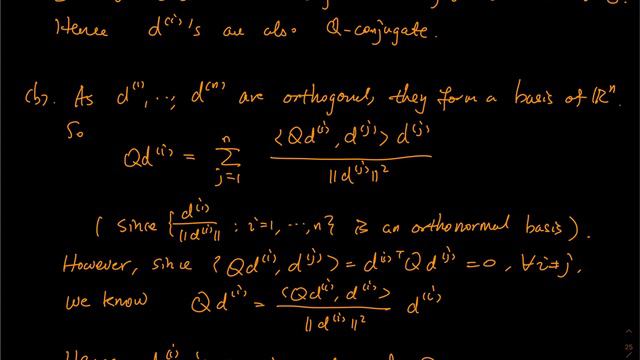 Hence d^(i)'s are also Q-conjugate.
(b). As d^(1), ..., d^(n) are orthogonal, they form a basis of ℝ^n.
So
Qd^(i) = Σ_{j=1}^{n} <Qd^(i), d^(j)> d^(j) / ||d^(j)||^2
(since {d^(i)/||d^(i)|| : i=1, ..., n} is an orthonormal basis).
However, since <Qd^(i), d^(j)> = d^(i)T Qd^(j) = 0, ∀i≠j,
we know Qd^(i) = <Qd^(i), d^(i)> / ||d^(i)||^2 d^(i)
25